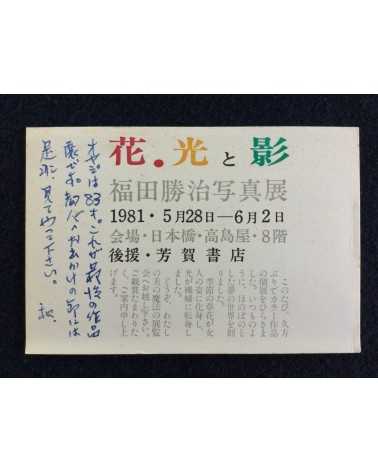 花・光と影
福田勝治写真展
1981・5月28日―6月2日
会場・日本橋・高島屋・8階
後援・芳賀書店
このたび、久方
ぶりでカラー作品
の個展をひらきま
した。いつものよ
うに、ほのぼのと
した夢の世界を創
りました。
季節の草花が女
人の姿に化身し、
光が機縁に転身し
の美の魔法の展覧
会へお越し下さい。
ご観賞たまわりた
く、ご案内申し上
げます。
オヤジは83才。これが最後の作品
展でお知人へ
お出かけの節には
是非、見てやって下さい。